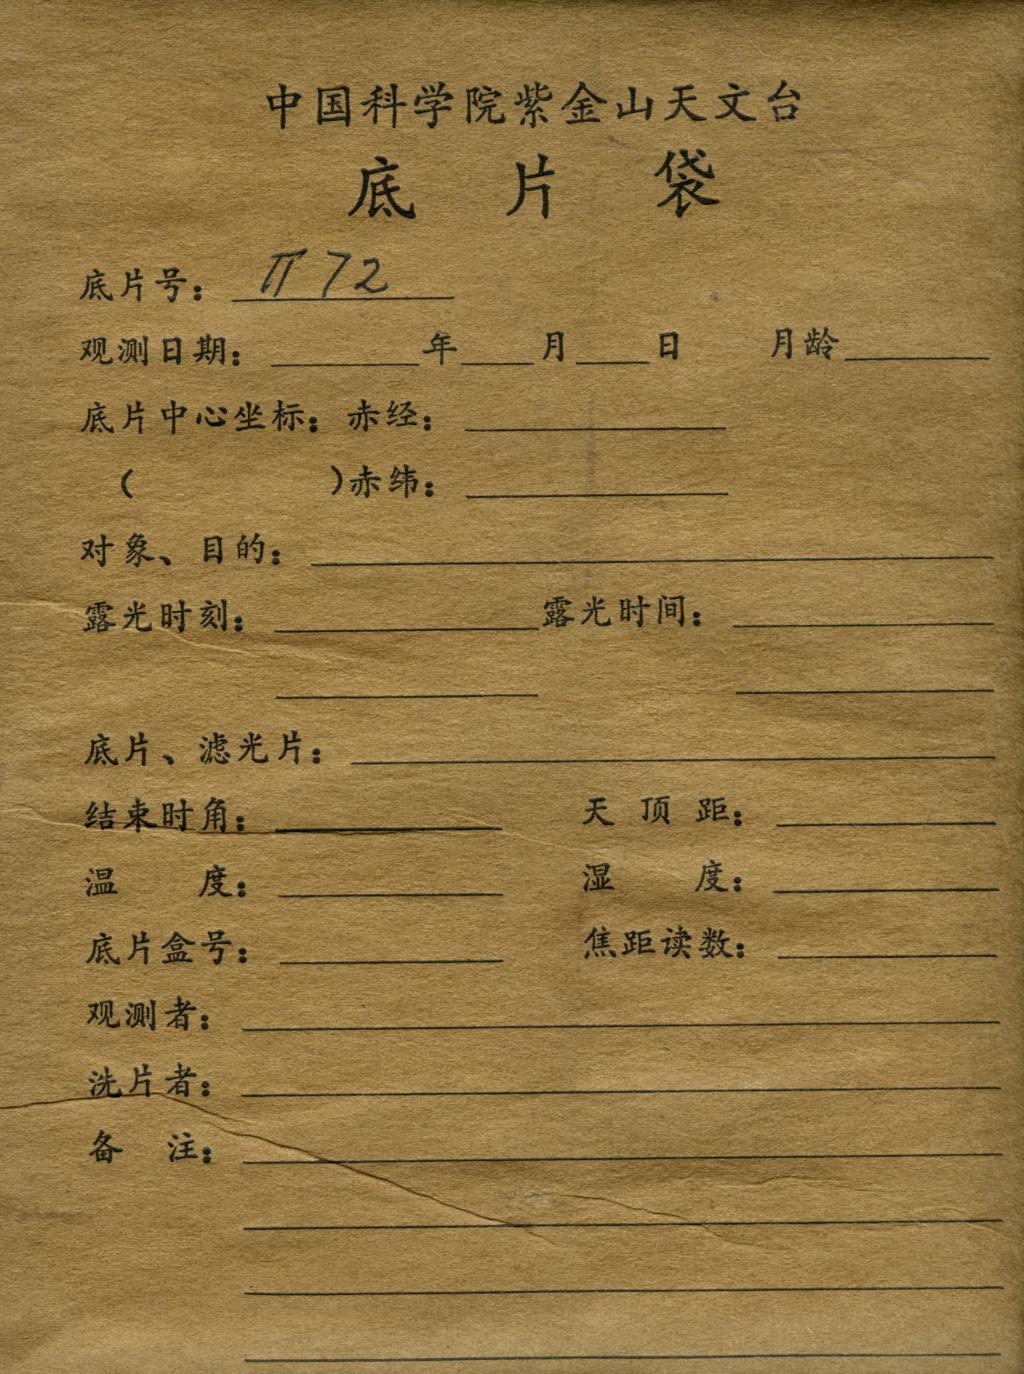 中国科学院紫金山天文台
底片袋
底片号： π72
观测日期：　　年　　月　　日　　月龄
底片中心坐标：赤经：
（　　　　　）赤纬：
对象、目的：
露光时刻：　　　　露光时间：
底片、滤光片：
结束时角：　　　　天顶距：
温度：　　　　湿度：
底片盒号：　　　　焦距读数：
观测者：
洗片者：
备注：